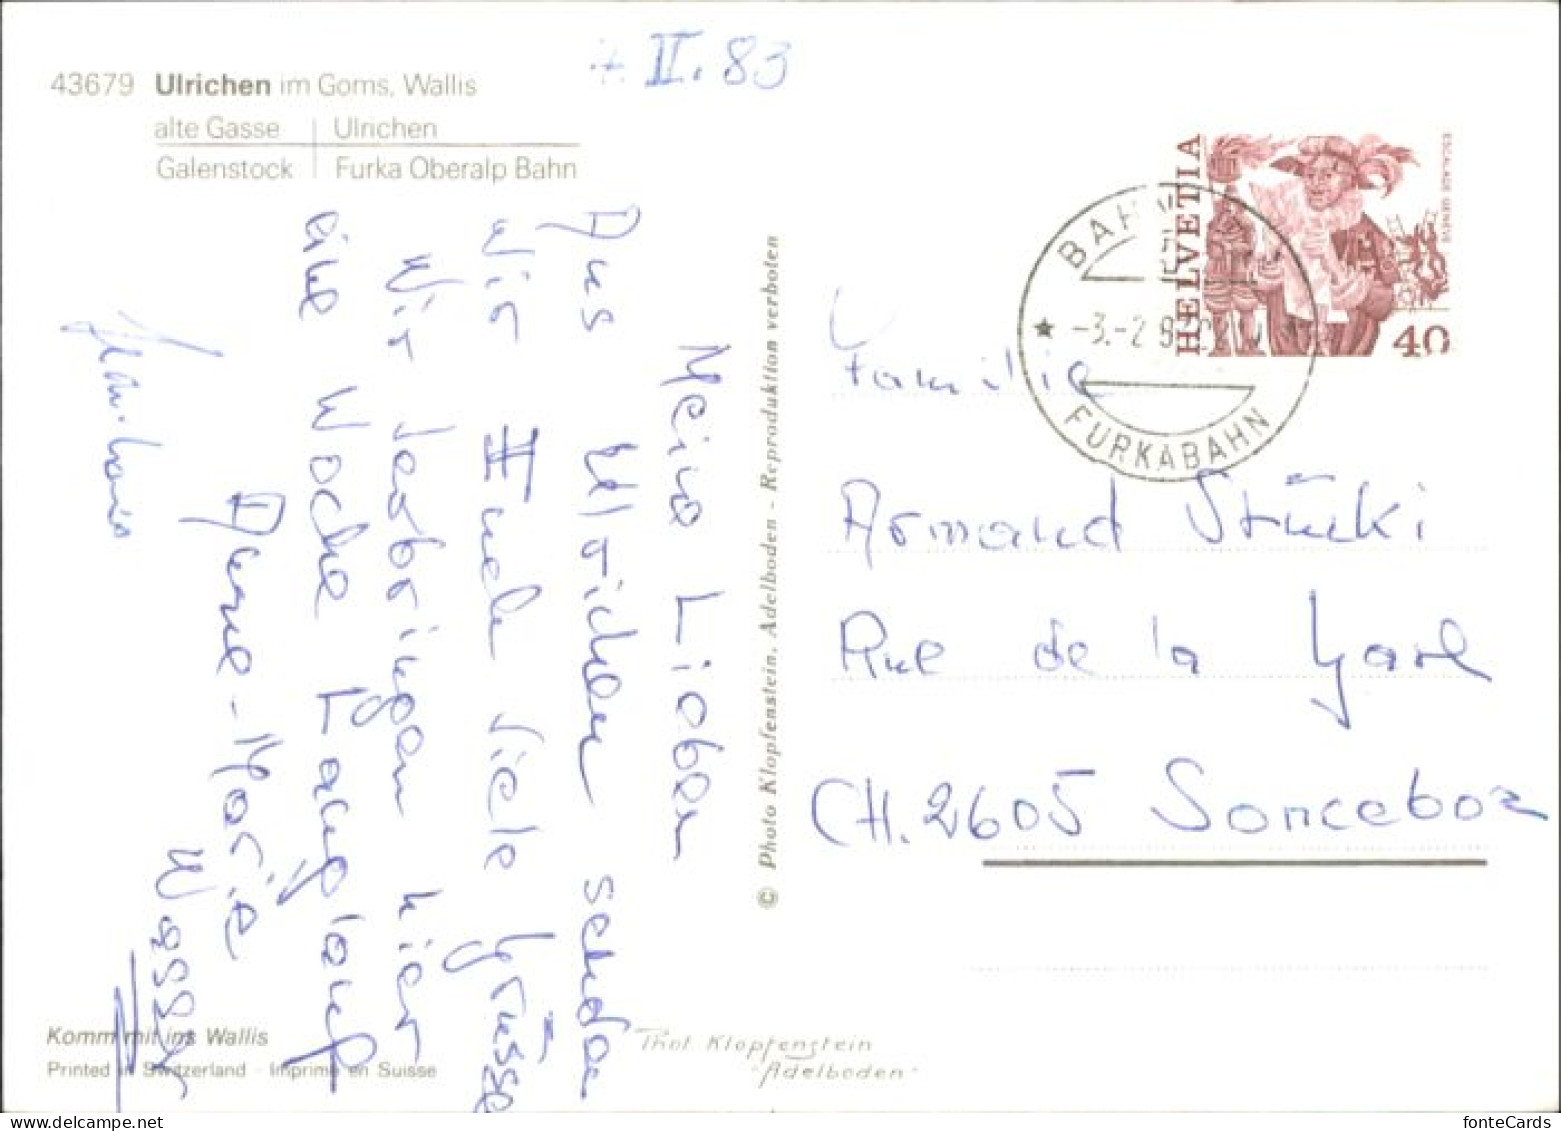 4. II. 83
43679 Ulrichen im Goms, Wallis
alte Gasse | Ulrichen
Galenstock | Furka Oberalp Bahn
Meine Lieben
Aus Ulrichen senden
wir Euch viele Grüsse
Wir verbringen hier
eine Woche Langlauf
Anne-Marie
Wasser
Jean-Louis
Komm mit ins Wallis
Printed in Switzerland - Imprimé en Suisse
© Photo Klopfenstein, Adelboden - Reproduktion verboten
Phot. Klopfenstein
"Adelboden"
HELVETIA
ESCALADE GENÈVE
40
-3.-2
FURKABAHN
Familie
Armand Stücki
Rue de la Gare
CH. 2605 Sonceboz
fonteCards